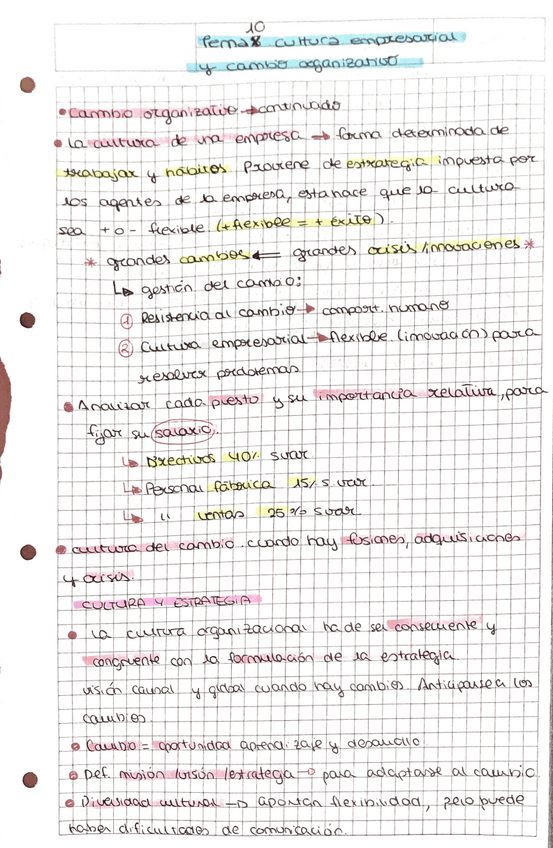 Tema 10 cultura empresarial
y cambio organizativo
• Cambio organizativo → continuado
• La cultura de una empresa → forma determinada de
trabajar y hábitos. Proviene de estrategia impuesta por
los agentes de la empresa, esta hace que la cultura
sea + o - flexible (+ flexible = + éxito).
* grandes cambios ⟸ grandes crisis / innovaciones *
↳ gestión del cambio:
① Resistencia al cambio → comport. humano
② Cultura empresarial → flexible (innovación) para
resolver problemas
• Analizar cada puesto y su importancia relativa, para
fijar su salario.
↳ Directivos 40% s.var
↳ Personal fábrica 15% s.var
↳ " ventas 25% s.var
• cultura del cambio cuando hay fusiones, adquisiciones
y crisis.
CULTURA Y ESTRATEGIA
• La cultura organizacional ha de ser consecuente y
congruente con la formulación de la estrategia
visión causal y global cuando hay cambios. Anticiparse a los
cambios.
• Cambio = oportunidad aprendizaje y desarrollo.
• Def. misión / visión / estrategia → para adaptarse al cambio
• Diversidad cultural → aportan flexibilidad, pero puede
haber dificultades de comunicación.